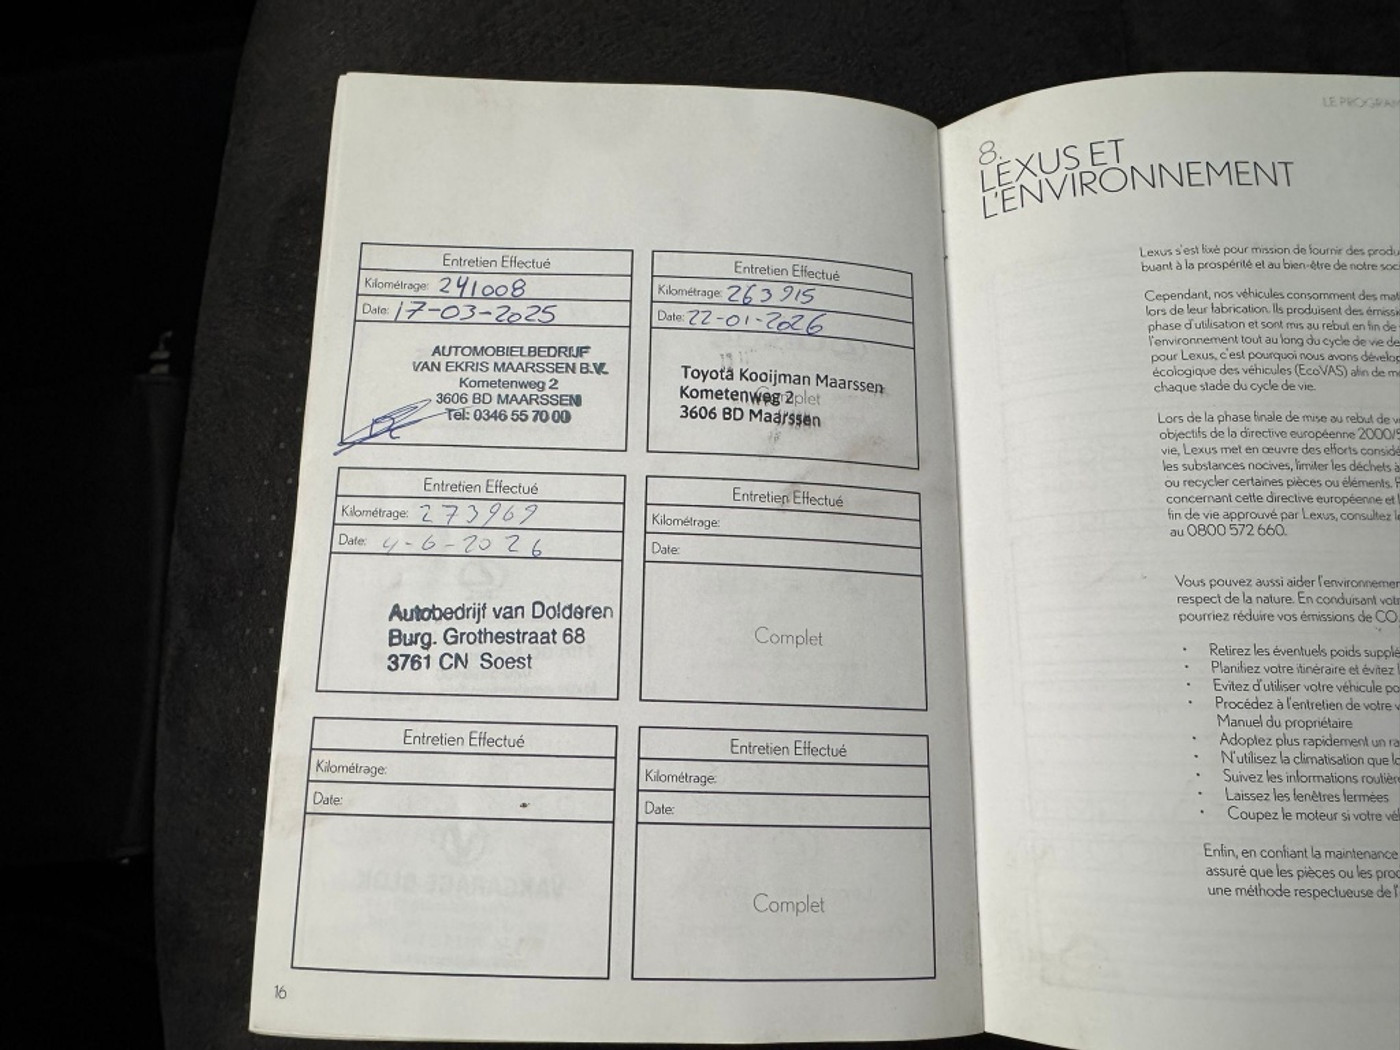 Entretien Effectué
Kilométrage: 241008
Date: 17-03-2025
AUTOMOBIELBEDRIJF
VAN EKRIS MAARSSEN B.V.
Kometenweg 2
3606 BD MAARSSEN
Tel: 0346 55 70 00
Entretien Effectué
Kilométrage: 263915
Date: 22-01-2026
Complet
Toyota Kooijman Maarssen
Kometenweg 2
3606 BD Maarssen
Entretien Effectué
Kilométrage: 273969
Date: 4-6-2026
Autobedrijf van Dolderen
Burg. Grothestraat 68
3761 CN Soest
Entretien Effectué
Kilométrage:
Date:
Complet
Entretien Effectué
Kilométrage:
Date:
Entretien Effectué
Kilométrage:
Date:
Complet
16
LE
8.
LEXUS ET
L'ENVIRONNEMENT
Lexus s'est fixé pour mission de fournir des
buant à la prospérité et au bien-être de notre
Cependant, nos véhicules consomment des
lors de leur fabrication. Ils produisent des
phase d'utilisation et sont mis au rebut en fin de
l'environnement tout au long du cycle de vie de
pour Lexus, c'est pourquoi nous avons
écologique des véhicules (EcoVAS) afin de
chaque stade du cycle de vie.
Lors de la phase finale de mise au rebut de
objectifs de la directive européenne
vie, Lexus met en œuvre des efforts
les substances nocives, limiter les déchets à
ou recycler certaines pièces ou éléments.
concernant cette directive européenne et
fin de vie approuvé par Lexus, consultez
au 0800 572 660.
Vous pouvez aussi aider
respect de la nature. En conduisant
pourriez réduire vos émissions de CO
• Retirez les éventuels poids
• Planifiez votre itinéraire et évitez
• Evitez d'utiliser votre véhicule
• Procédez à l'entretien de votre
Manuel du propriétaire
• Adoptez plus rapidement un
• N'utilisez la climatisation que
• Suivez les informations
• Laissez les fenêtres fermées
• Coupez le moteur si votre
Enfin, en confiant la maintenance
assuré que les pièces ou les
une méthode respectueuse de